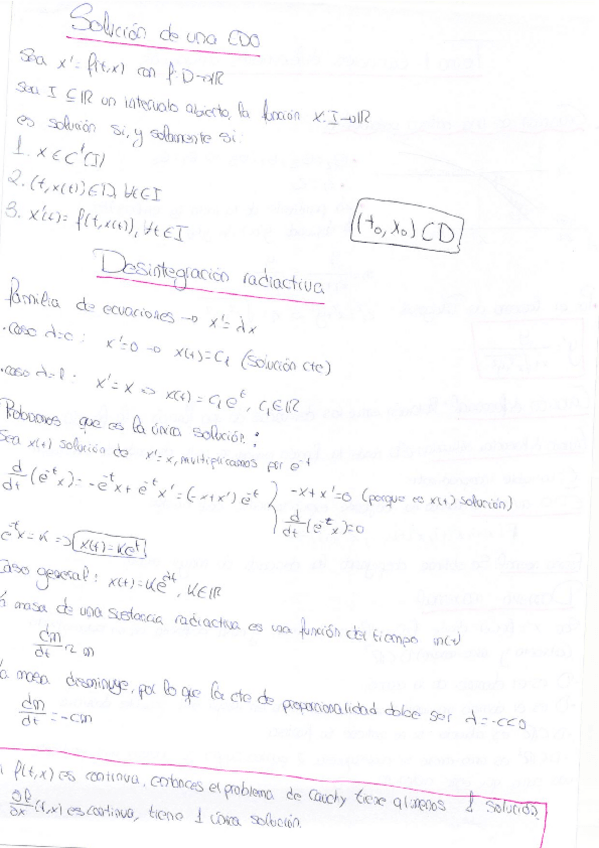 Solución de una EDO
Sea x' = f(t,x) con f: D→ℝ
sea I ⊆ ℝ un intervalo abierto, la función x: I→ℝ
es solución si, y solamente si:
1. x ∈ C¹(I)
2. (t, x(t)) ∈ D, ∀t ∈ I
3. x'(t) = f(t, x(t)), ∀t ∈ I
(t₀, x₀) ⊂ D
Desintegración radiactiva
familia de ecuaciones → x' = λx
·caso λ=0 : x'=0 → x(t)=C₁ (solución cte)
·caso λ=1 : x'=x ⇒ x(t)=C₁eᵗ, C₁∈ℝ
Probamos que es la única solución:
Sea x(t) solución de x'=x, multiplicamos por e⁻ᵗ
d/dt (e⁻ᵗx) = -e⁻ᵗx + e⁻ᵗx' = (-x+x') e⁻ᵗ
-x+x'=0 (porque es x(t) solución)
d/dt (e⁻ᵗx)=0
e⁻ᵗx = K ⇒ x(t)=Keᵗ
Caso general: x(t)=Ke^λt, K∈ℝ
a masa de una sustancia radiactiva es una función del tiempo m(t)
dm/dt ~ m
a masa disminuye, por lo que la cte de proporcionalidad debe ser λ=-c<0
dm/dt = -cm
i f(t,x) es continua, entonces el problema de Cauchy tiene al menos 1 solución
∂f/∂x (t,x) es continua, tiene 1 única solución.